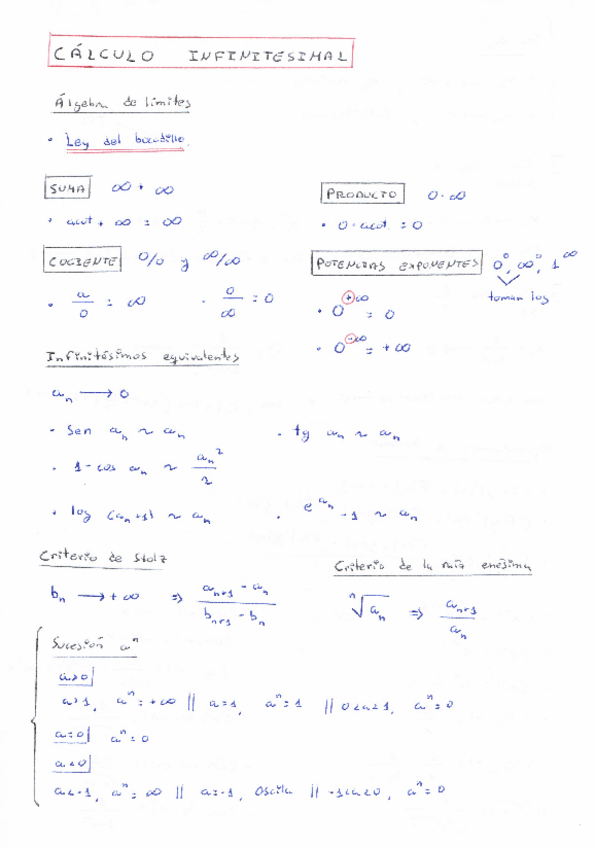 CÁLCULO INFINITESIMAL
Álgebra de límites
• Ley del bocadillo.
SUMA ∞ + ∞
PRODUCTO 0·∞
• acot + ∞ = ∞
• 0 · acot. = 0
COCIENTE 0/0 y ∞/∞
POTENCIAS EXPONENTES 0⁰, ∞⁰, 1^∞
toman log
• a/0 = ∞
• 0/∞ = 0
• 0^(+∞) = 0
• 0^(-∞) = +∞
Infinitésimos equivalentes
aₙ ⟶ 0
- Sen aₙ ~ aₙ
• tg aₙ ~ aₙ
• 1 - cos aₙ ~ aₙ²/2
• log (aₙ+1) ~ aₙ
• e^(aₙ) - 1 ~ aₙ
Criterio de Stolz
Criterio de la raíz enésima
bₙ ⟶ +∞ ⇒ (aₙ₊₁ - aₙ)/(bₙ₊₁ - bₙ)
ⁿ√aₙ ⇒ aₙ₊₁/aₙ
Sucesión aⁿ
a>0
a>1, aⁿ = +∞ || a=1, aⁿ = 1 || 0<a<1, aⁿ = 0
a=0 aⁿ = 0
a<0
a<-1, aⁿ = ∞ || a=-1, Oscila || -1<a<0, aⁿ = 0